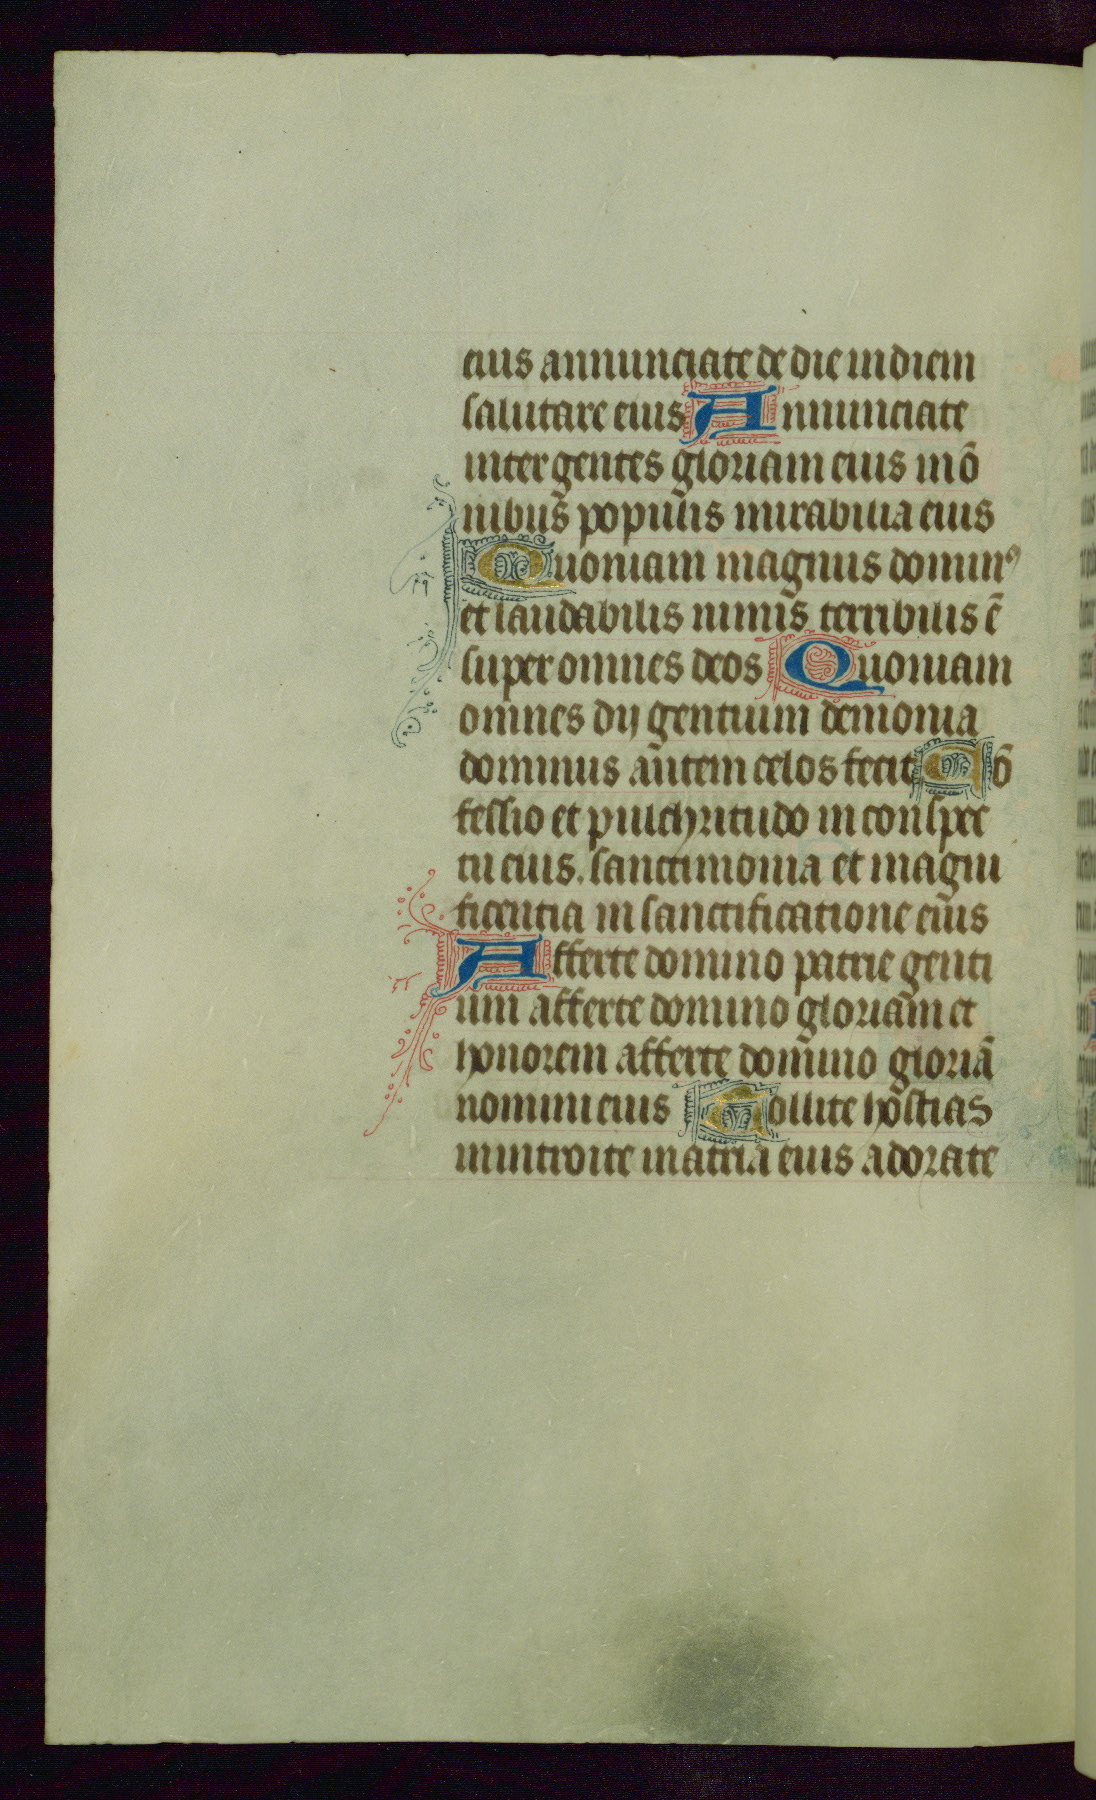 eius annunciate de die in diem
salutare eius Annunciate
inter gentes gloriam eius in ō
nibus populis mirabilia eius
Quoniam magnus dominꝰ
et laudabilis nimis terribilis ē
super omnes deos Quoniam
omnes dij gentium demonia
dominus autem celos fecit Cō
fessio et pulchritudo in conspec
tu eius. sanctimonia et magni
ficentia in sanctificatione eius
Afferte domino patrie genti
um afferte domino gloriam et
honorem afferte domino gloriā
nomini eius Tollite hostias
et introite in atria eius adorate